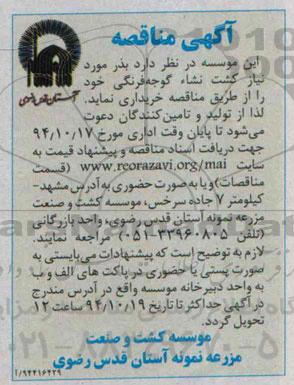 آگهی مناقصه
آستان قدس رضوی
این موسسه در نظر دارد بذر مورد
نیاز کشت نشاء گوجه‌فرنگی خود
را از طریق مناقصه خریداری نماید.
لذا از تولید و تامین‌کنندگان دعوت
می‌شود تا پایان وقت اداری مورخ ۹۴/۱۰/۱۷
جهت دریافت اسناد مناقصه و پیشنهاد قیمت به
سایت www.reorazavi.org/mai (قسمت
مناقصات) و یا به صورت حضوری به آدرس مشهد-
کیلومتر ۷ جاده سرخس، موسسه کشت و صنعت
مزرعه نمونه آستان قدس رضوی، واحد بازرگانی
(تلفن ۳۳۹۶۰۸۰۵-۰۵۱) مراجعه نمایند.
لازم به توضیح است که پیشنهادات می‌بایستی به
صورت پستی یا حضوری در پاکت های الف و ب
به واحد دبیرخانه موسسه واقع در آدرس مندرج
در آگهی حداکثر تا تاریخ ۹۴/۱۰/۱۹ ساعت ۱۲
تحویل گردد.
موسسه کشت و صنعت
مزرعه نمونه آستان قدس رضوی
۹۴۴۱۶۴۲۹/آ